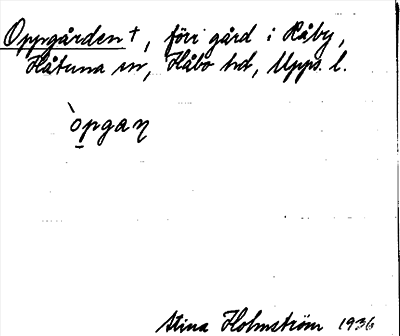 Oppgården †, förr gård i Råby,
Håtuna sn, Håbo hd, Upps. l.
`opgaɳ
Stina Holmström 1936